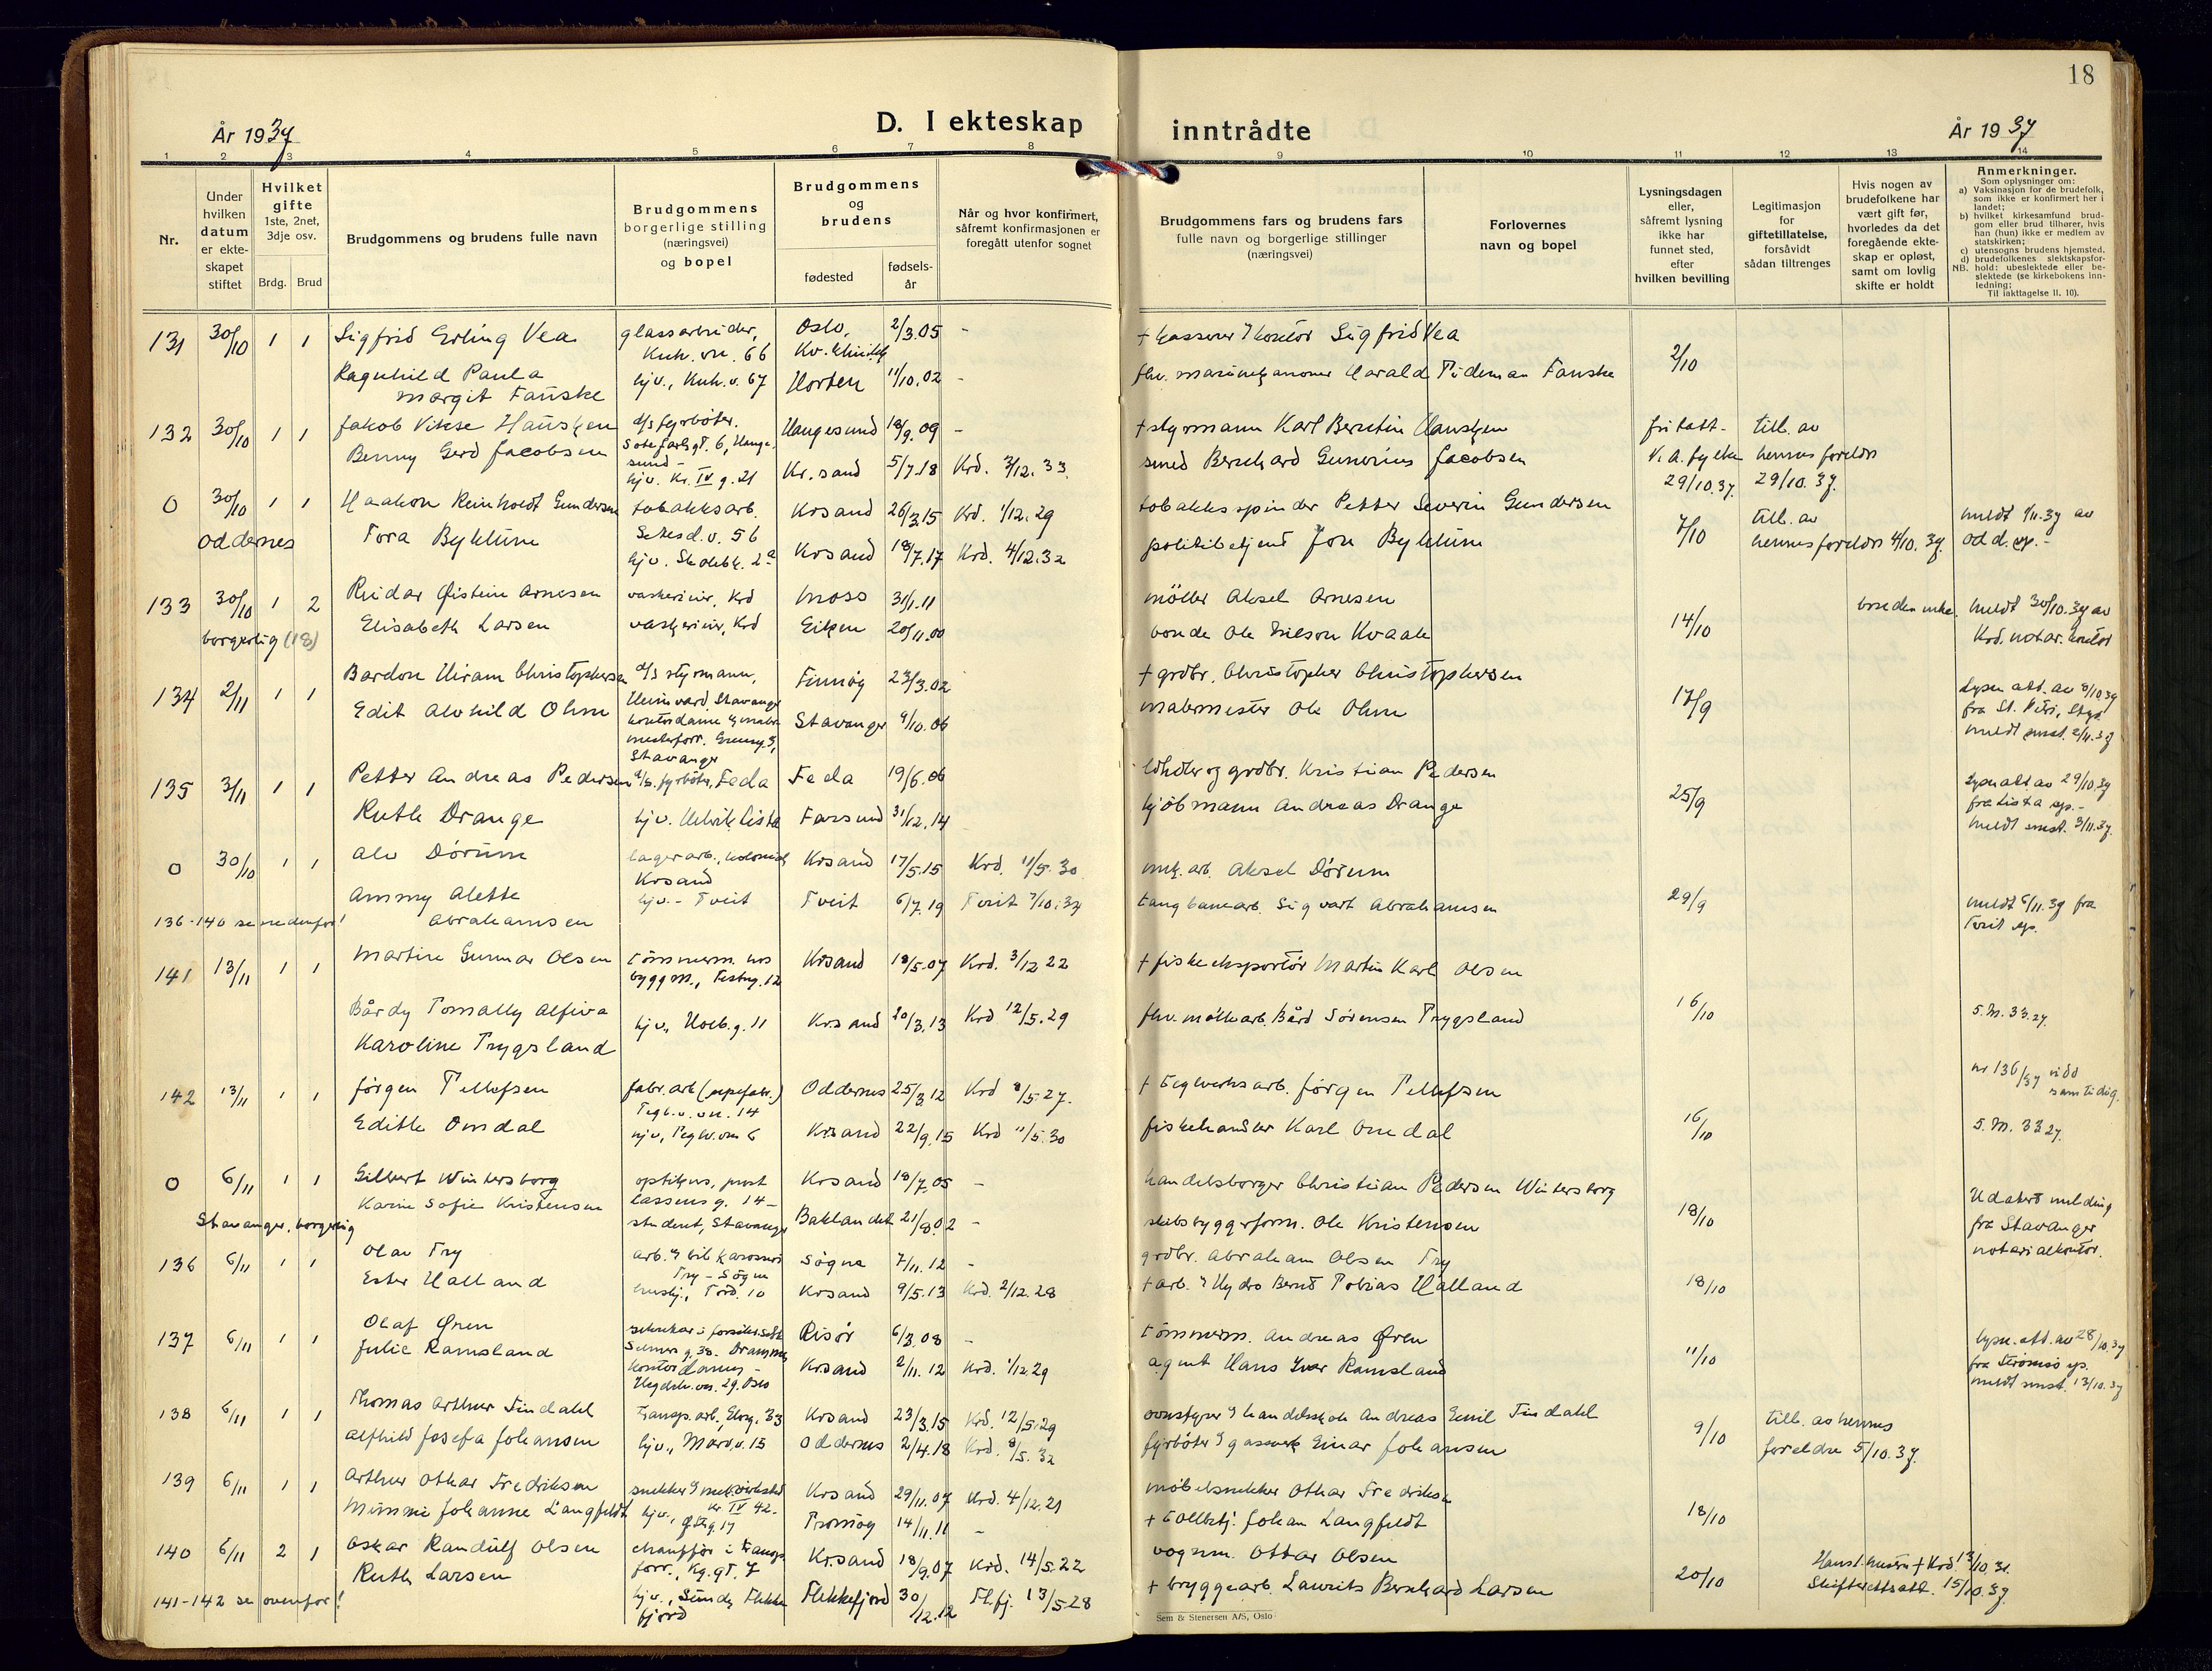 18
År 1937
D. I ekteskap
inntrådte
År 1937
1 2 3 4 5 6 7 8 9 10 11 12 13 14
Nr.
Under
hvilken
datum
er ekte-
skapet
stiftet
Hvilket
gifte
1ste, 2net,
3dje osv.
Brdg. Brud
Brudgommens og brudens fulle navn
Brudgommens
borgerlige stilling
(næringsvei)
og bopel
Brudgommens
og
brudens
fødested
fødsels-
år
Når og hvor konfirmert,
såfremt konfirmasjonen er
foregått utenfor sognet
Brudgommens fars og brudens fars
fulle navn og borgerlige stillinger
(næringsvei)
Forlovernes
navn og bopel
Lysningsdagen
eller,
såfremt lysning
ikke har
funnet sted,
efter
hvilken bevilling
Legitimasjon
for
giftetillatelse,
forsåvidt
sådan tiltrenges
Hvis nogen av
brudefolkene har
vært gift før,
hvorledes da det
foregående ekte-
skap er opløst,
samt om lovlig
skifte er holdt
Anmerkninger.
Som oplysninger om:
a) Vaksinasjon for de brudefolk,
som ikke er konfirmert her i
landet;
b) hvilket kirkesamfund brud-
gom eller brud tilhører, hvis
han (hun) ikke er medlem av
statskirken;
c) utensogns brudens hjemsted.
d) brudefolkenes slektskapsfor-
NB. hold: ubeslektede eller be-
slektede (se kirkebokens inn-
ledning;
Til iakttagelse II. 10).
131 30/10 1 1 Sigfrid Erling Vea glassarbeider, Oslo, 2/3.05 - + kasserer Sigfrid Vea 2/10
Kuh. vn. 66 Kv. klinikk
Ragnhild Paula hjv., Kuh.v. 67 Horten 11/10.02 - fhv. Harald Tideman Fauske
Margit Fauske
132 30/10 1 1 Jakob Vikse Hausken d/s fyrbøter. Haugesund 18/9.09 + styrmann Karl Berntin Hausken fritatt- till. av
gt. 6, Hauge-
sund -
Benny Gerd Jacobsen hjv. Kr. IV g. 21 Kr.sand 5/7.18 Krd. 3/12.33 smed Bernhard Gunerius Jacobsen V. A. fylke hennes foreldr
29/10.37. 29/10.37.
0 30/10 1 1 Haakon Reinholdt Gundersen tobakksarb. Krsand 26/3.15 Krd. 1/12.29 tobakksspinder Petter Severin Gundersen 7/10 till. av meldt 1/11.37 av
Oddernes Setesd. v. 56
Tora Byklum hjv. Skolebk. 2a Krsand 18/7.17 Krd. 4/12.32 politibetjent Jon Byklum hennes foreldr 4/10.37. Odd. sp.-
133 30/10 1 2 Reidar Øistein Arnesen vaskerieier, Krd Moss 31/1.11 möller Aksel Arnesen 14/10 meldt 30/10.37 av
borgerlig (18) Elisabeth Larsen vaskerieier, Krd Eiken 20/11.00 bonde Ole Kvaale Krd. notar. kontor
134 2/11 1 1 Bardon Hiram Christophersen d/s styrmann, Finnøy 23/3.02 + grdbr. Christopher Christophersen 17/9 Lysn. att. av 8/10 37
Stavanger
Edit Alvhild Ohm kontordame Stavanger 9/10.06 malermester Ole Ohm fra St. Petri, Stvgr.
Stavanger meldt smst. 2/11.37
135 3/11 1 1 Petter Andreas Pedersen d/s. fyrbøter, Feda Feda 19/6.06 og grdbr. Kristian Pedersen 25/9 Lysn att av 29/10.37
Ruth Drange hjv. Lista Farsund 31/12.14 kjöbmann Andreas Drange fra Lista sp.-
meldt smst. 3/11.37.
0 30/10 1 1 Alv Dørum lagerarb., kolonial Krsand 17/5.15 Krd. 11/5.30 Aksel Dørum 29/9
Krsand
Ammy Alette hjv. - Tveit Tveit 6/7.19 Sigvart Abrahamsen meldt 6/11.37 fra
Abrahamsen Tveit sp.
136-140 se nedenfor!
141 13/11 1 1 Martin Gunnar Olsen tömmerm. hos Krsand 18/5.07 Krd. 3/12 22 + fiskeeksportør Martin Karl Olsen 16/10
byggm., Festng. 12
Bårdy Tomally Alfiva hjv., Holb.g. 11 Krsand 20/3.13 Krd 12/5.29 fhv. møllearb. Bård Sörensen Trygsland 5. M. 33.27.
Karoline Trygsland
142 13/11 1 1 Jörgen Tellefsen fabr. arb (sepefabr.) Oddernes 25/3.12 Krd 8/5.27. + teglverksarb. Jörgen Tellefsen 16/10 nr 136/37 viedd
Teglv. vn. 14 samtidig.
Edith Omdal hjv, Teglv.vn 6 Krsand 22/9.15 Krd 11/5.30 fiskehandler Karl Omdal 5. M. 33 27.
0 6/11 1 1 Gilbert Wintersborg optikus, prost Krsand 18/7.05 - handelsborger Christian Pedersen Wintersborg 18/10 Udatert melding
Lassens g. 14 -
Karin Sofie Kristensen student, Stavanger Baklandet 21/8.02 - skibsbyggerform. Ole Kristensen fra Stavanger
Stavanger, borgerlig notarialkontor.
136 6/11 1 1 Olav Try arb. bilkarosseri Søgne 7/11.12 - grdbr. Abraham Olsen Try 18/10
Try - Søgne
Ester Halland hushj., Tord. 10 Krsand 9/5.13 Krd. 2/12.28 + arb. Hydro Bernt Tobias Halland
137 6/11 1 1 Olaf Øren Risør 6/3.08 - tömmerm. Andreas Øren 11/10 Lysn. att. av 28/10.37
g. 38. Drammen
Julie Ramsland kontordame - Krsand 2/11.12 Krd. 1/12.29 agent Hans Iver Ramsland fra Strømsø sp.
Hegdeh.vn. 29. Oslo meldt smst. 13/10.37
138 6/11 1 1 Thomas Arthur Tindahl transp. arb., Elvg. 33 Krsand 23/3.15 Krd. 12/5.29 handelsskole Andreas Emil Tindahl 9/10 till. av hennes
Alfhild Josefa Johansen hjv., Mard.v. 15 Oddernes 2/4.18 Krd. 8/5.32 fyrbøter gassverk Einar Johansen foreldre 5/10.37.
139 6/11 1 1 Arthur Othar Fredriksen snekker Krsand 29/11.07 Krd. 4/12.21 möbelsnekker Othar Fredriksen 18/10
Kr. IV 42.
Mimmi Johanne Langfeldt hjv., Tromøy 14/11.11 - + tollbtj. Johan Langfeldt
140 6/11 2 1 Oskar Randulf Olsen chauffør i transp. Krsand 18/9.07 Krd. 14/5.22 vognm. Ottar Olsen 20/10 Hans f. hustru + Krd. 13/10.31.
forr., Kg. gt. 7
Ruth Larsen hjv., Sunde, Flekke Flekkefjord 30/12.12 Fl.fj. 13/5.28 + bryggearb. Laurits Bernhard Larsen Skifterettsatt. 15/10.37.
fjord
141-142 se ovenfor!
Sem & Stenersen A/S, Oslo